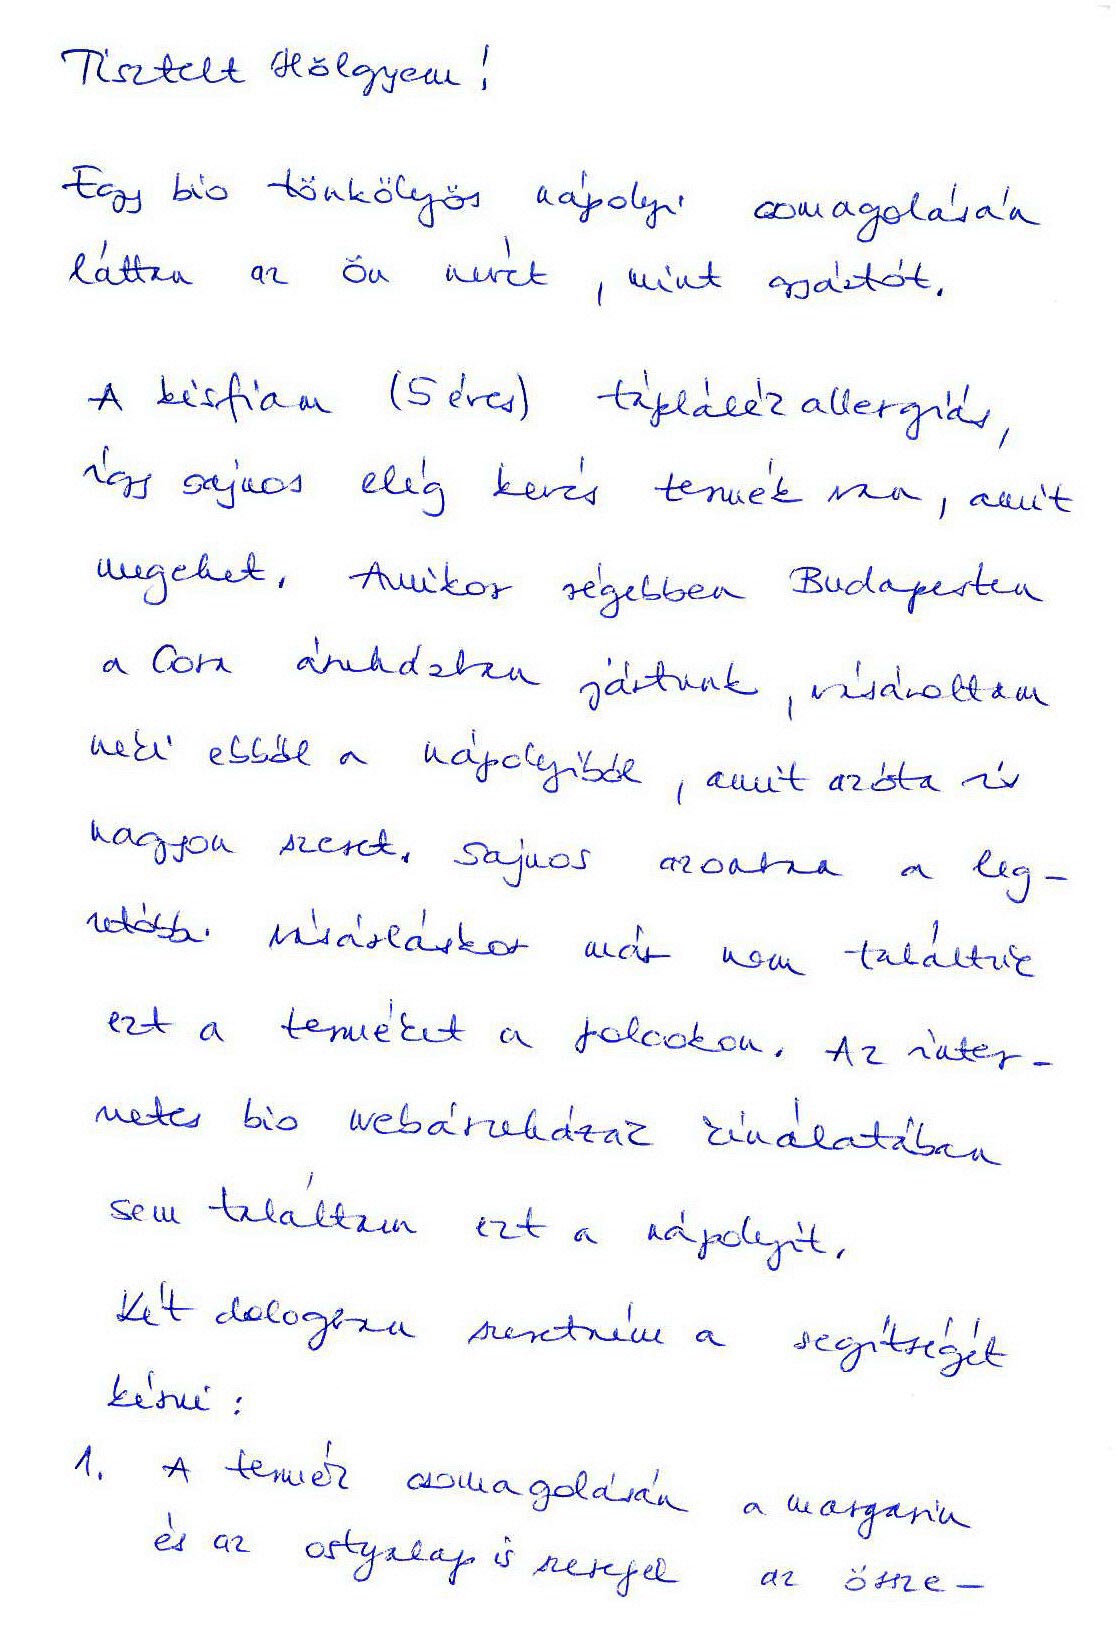 Tisztelt Hölgyem!
Egy bio tönkölyös nápolyi csomagolásán
láttam az Ön nevét, mint gyártót.
A kisfiam (5 éves) táplálék allergiás,
így sajnos elég kevés termék van, amit
megehet. Amikor régebben Budapesten
a Cora áruházban jártunk, vásároltam
neki ebből a nápolyiból, amit azóta is
nagyon szeret. Sajnos azonban a leg-
utóbbi vásárláskor már nem találtuk
ezt a terméket a polcokon. Az inter-
netes bio webáruházak kínálatában
sem találtam ezt a nápolyit.
Két dologban szeretném a segítségét
kérni:
1. A termék csomagolásán a margarin
és az ostyalap is szerepel az össze-